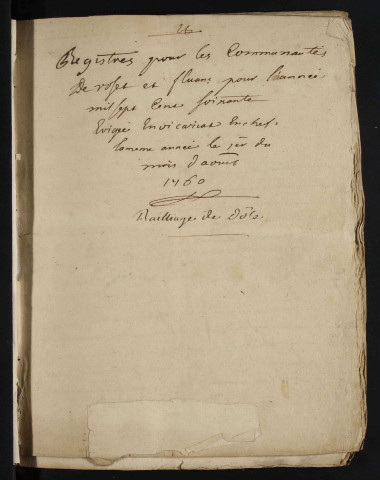 Registres pour les Communautés
De roset et fluans pour l'année
mil sept Cent soixante
Erigée En vicariat En chef
la meme année le 1er du
mois d'aout
1760
Bailliage de Dôle